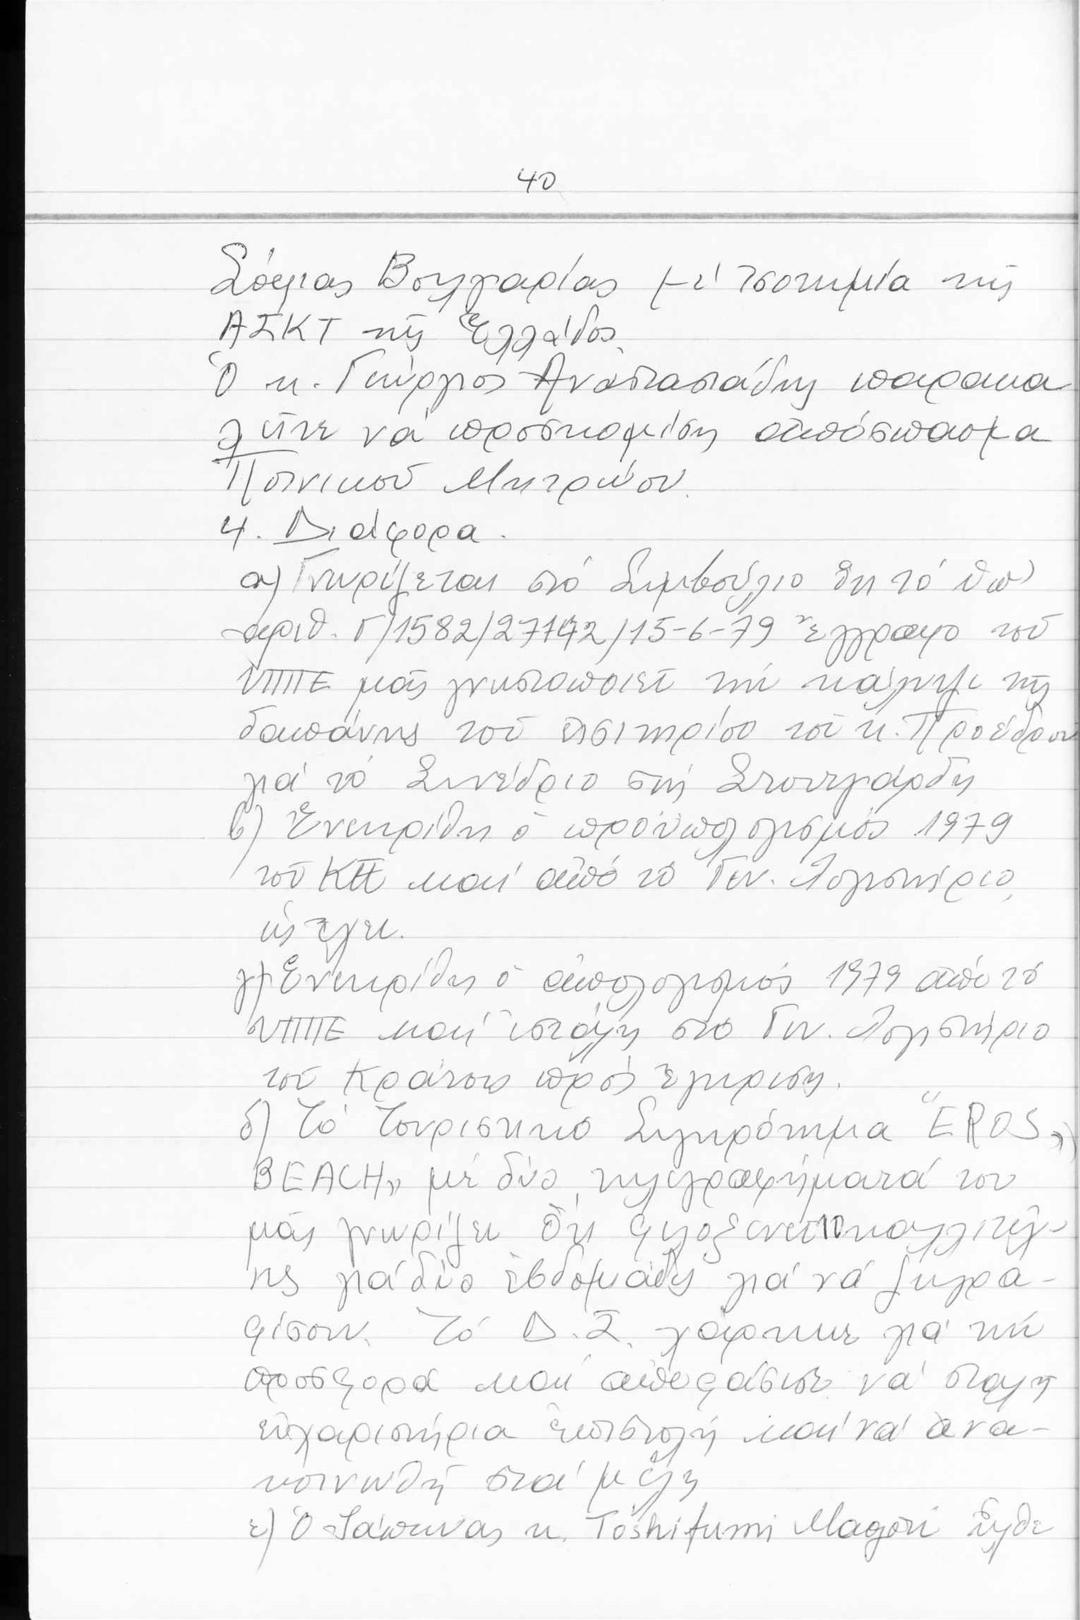 40
Σόφιας Βουλγαρίας μέ ἰσοτιμία τῆς
ΑΣΚΤ τῆς Ἑλλάδος.
Ὁ κ. Γεώργιος Ἀναστασιάδης παρακα
λεῖται νά προσκομίση ἀπόσπασμα
Ποινικοῦ Μητρώου.
4. Διάφορα.
α) Γνωρίζεται στό Συμβούλιο ὅτι τό ὑπ'
ἀριθ. Γ/1582/27142/15-6-79 ἔγγραφο τοῦ
ΥΠΠΕ μᾶς γνωστοποιεῖ τήν κάλυψι τῆς
δαπάνης τοῦ εἰσιτηρίου τοῦ κ. Προέδρου
γιά τό Συνέδριο στή Στουτγάρδη
β) Ἐνεκρίθη ὁ προϋπολογισμός 1979
τοῦ ΚΠ καί ἀπό τό Γεν. Λογιστήριο,
ὡς ἔχει.
γ) Ἐνεκρίθη ὁ ἀπολογισμός 1979 ἀπό τό
ΥΠΠΕ καί ἐστάλη στό Γεν. Λογιστήριο
τοῦ Κράτους πρός ἔγκριση.
δ) Τό Τουριστικό Συγκρότημα "EROS
BEACH" μέ δύο τηλεγραφήματά του
μᾶς γνωρίζει ὅτι φιλοξενεῖ 10 καλλιτέχ-
νες γιά δύο ἑβδομάδες γιά νά ζωγρα-
φίσουν. Τό Δ.Σ. χάρηκε γιά τήν
προσφορά καί ἀπεφάσισε νά σταλῆ
εὐχαριστήρια ἐπιστολή καί νά ἀνα-
κοινωθῆ στά μέλη
ε) Ὁ Ἰάπωνας κ. Toshifumi ἦλθε